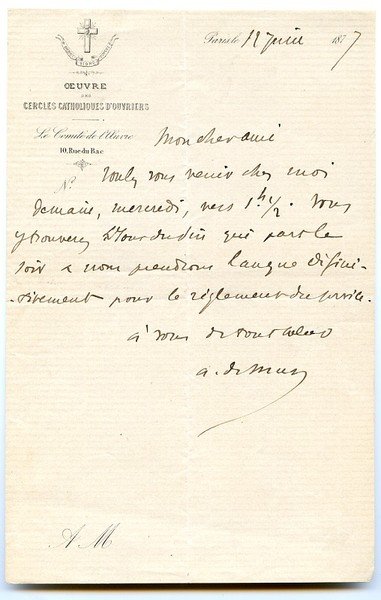 IN HOC SIGNO VINCES
Paris le 12 juin 1877
ŒUVRE
DES
CERCLES CATHOLIQUES D'OUVRIERS
Le Comité de l'Œuvre
10, Rue du Bac
Mon cher ami
No
voulez vous venir chez moi
demain, mercredi, vers 1h 1/2. Vous
y trouverez La Tour du Pin qui part le
soir & nous prendrons langue défini-
-tivement pour le règlement du
à vous de tout cœur
a. de Mun
A M